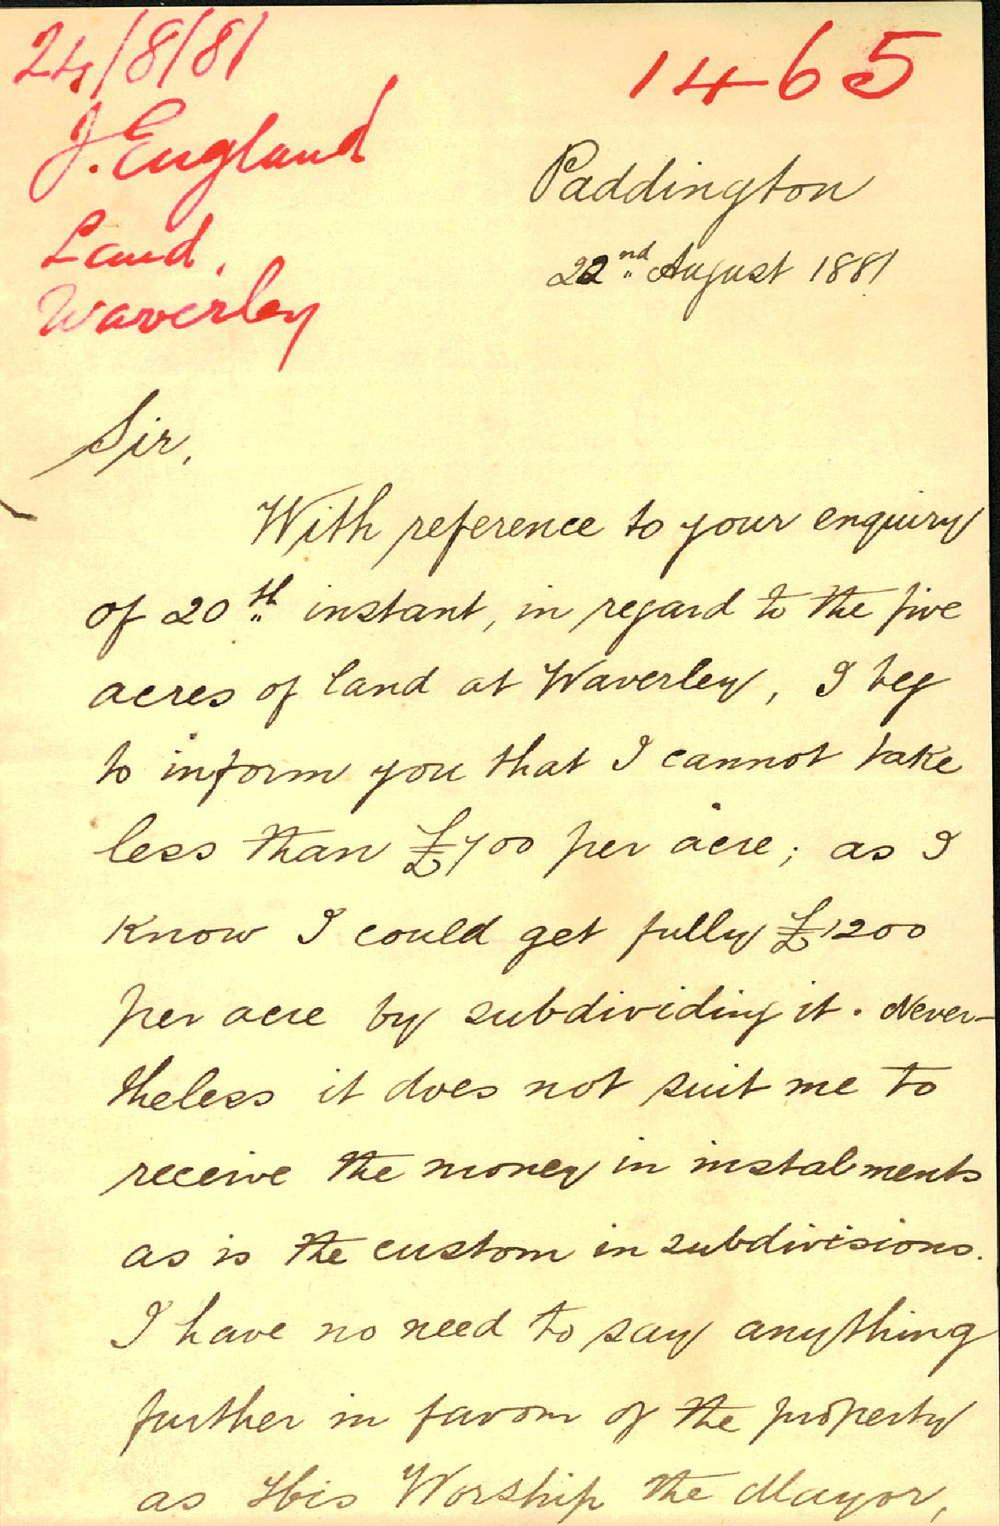 24/8/81
J. England
Land.
Waverley
1465
Paddington
22nd August 1881
Sir,
With reference to your enquiry
of 20th instant, in regard to the five
acres of land at Waverley, I beg
to inform you that I cannot take
less than £700 per acre; as I
know I could get fully £1200
per acre by subdividing it. Never-
theless it does not suit me to
receive the money in instalments
as is the custom in subdivisions.
I have no need to say anything
further in favor of the property
as His Worship the Mayor,